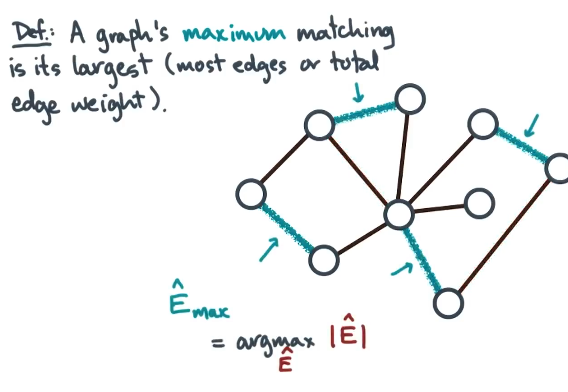 Def.: A graph's maximum matching
is its largest (most edges or total
edge weight).
Ê max
= argmax |Ê|
Ê